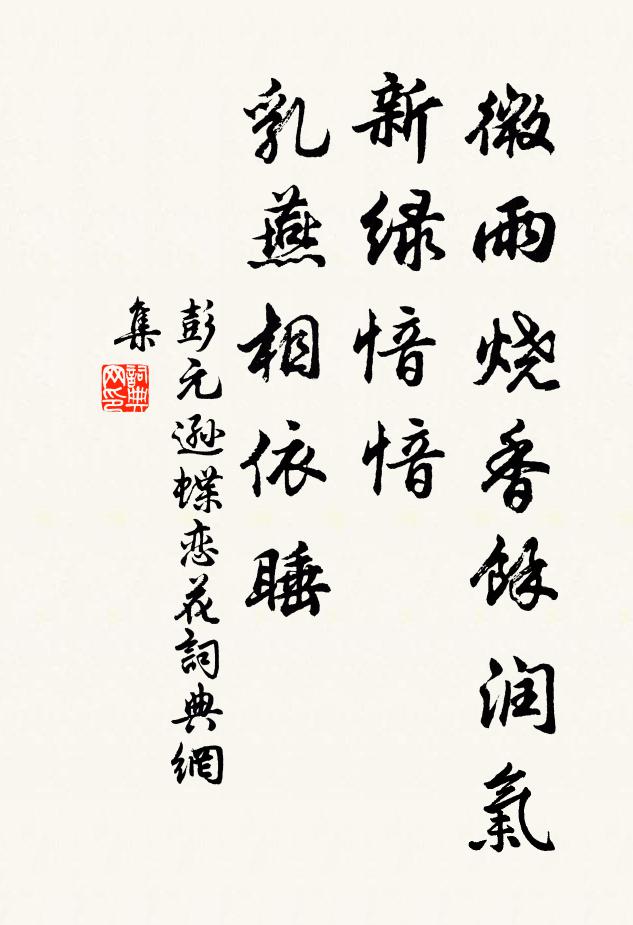 微雨烧香餘润氣
新绿愔愔
乳燕相依睡
彭元遜蝶恋花詞典網
集
詞典网印